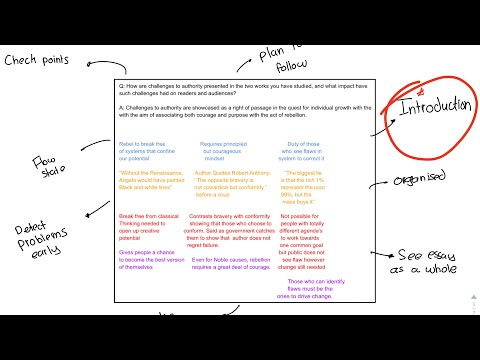 Check points
Plan to
follow
Q: How are challenges to authority presented in the two works you have studied, and what impact have
such challenges had on readers and audiences?
A: Challenges to authority are showcased as a right of passage in the quest for individual growth with the
with the aim of associating both courage and purpose with the act of rebellion.
Introduction
Rebel to break free
of systems that confine
our potential
Requires principled
but courageous
mindset
Duty of those
who see flaws in
system to correct it
Flow
state
"Without the Renaissance,
Angelo would have painted
Black and white lines"
Author Quotes Robert Anthony:
" The opposite bravery is
not cowardice but conformity "
before a coup
"The biggest lie
is that the rich 1%
represent the poor
99%, but the
mass buys it"
organised
Detect
problems
early
Break free from classical
Thinking needed to
open up creative
potential
Contrasts bravery with conformity
showing that those who choose to
conform. Said as government catches
them to show that author does not
regret failure.
Not possible for
people with totally
different agenda's
to work towards
one common goal
but public does not
see flaw however
change still needed
See essay
as a whole
Gives people a chance
to become the best version
of themselves
Even for Noble causes, rebellion
requires a great deal of courage.
Those who can identify
flaws must be the
ones to drive change.